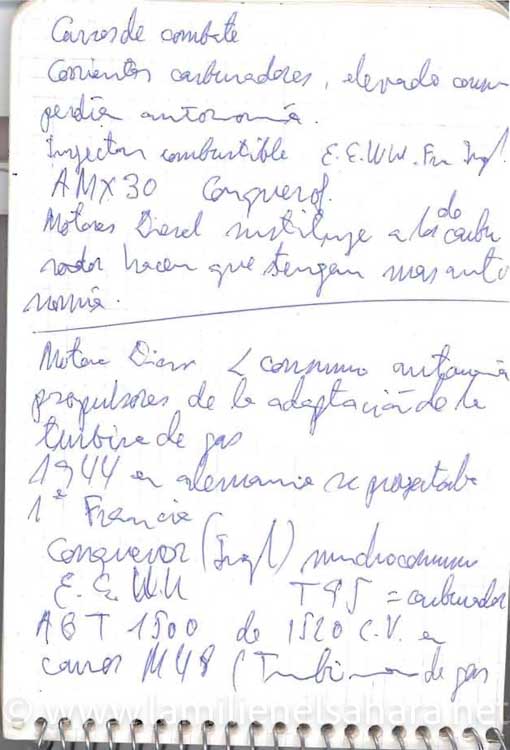 Carros de combate
Corrientes carburadores, elevado consu
perdia autonomía.
Inyectan combustible E.E.W.W. Fr Ingl.
AMX30 Conqueror.
Motores Diesel sustituye a los de carbu
rador hacen que tengan mas auto
nomia.
Motore Diess < consumo autonomia
propulsores de la adaptación de la
turbina de gas
1944 en alemania se proyectaba
1º Francia
Conqueror (Ingl) mucho consumo
E.E.W.U T95 = carburador
AGT 1500 de 1520 C.V. en
carros M48 (Turbina de gas
© www.lamilienelsahara.net